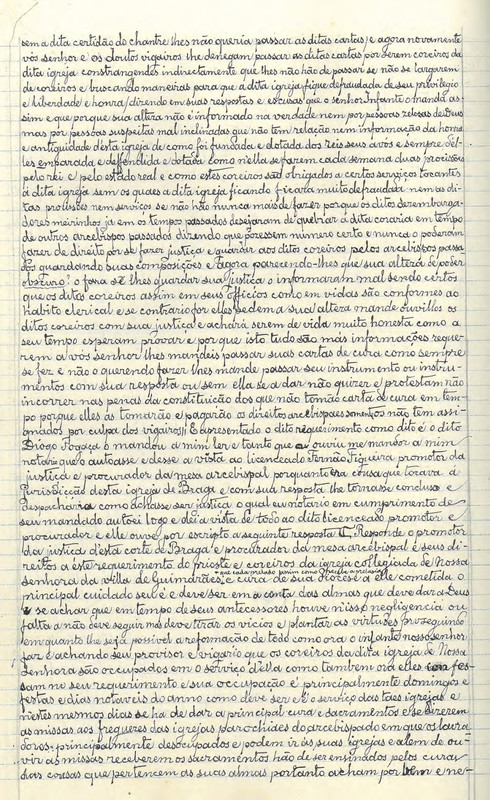 sem a dita certidão do chantre lhes não queria passar as ditas cartas, e agora novamente
vós senhor e os doutos vigairos lhe denegam passar as ditas cartas por serem coreiros da
dita igreja constrangendos indirectamente que lhes não hão de passar se não se largarem
de coreiros e buscando maneiras para que a dita igreja fique defraudada de seu privilegio
e liberdade e honra, dizendo em suas respostas e escusas que o senhor Infante o manda as-
sim e que porque sua altera não é informado na verdade nem por pessoas zelosas de Deus
mas por pessoas suspeitas mal inclinadas que não tem relação nem informação da honra
e antiguidade desta igreja de como foi fundada e dotada dos reis seus avós e sempre d'el-
les emparada e deffendida e dotada como n'ella se fazem cada semana duas procissões
pelo rei e pelo estado real e como estes coreiros são obrigados a certos serviços tocantes
á dita igreja sem os quaes a dita igreja ficando ficará muito defraudada nem as di-
tas procissões nem serviços se não hão nunca mais de fazer porque os ditos desembarga-
dores meirinhos já em os tempos passados desejaram de quebrar a dita coraria em tempo
de outros arcebispos passados dizendo que pozessem número certo e nunca o poderam
fazer de direito por se fazer justiça e guardar aos ditos coreiros pelos arcebispos passa-
dos guardando suas composições e agora parecendo-lhes que sua altera de poder
absoluto o fará se lhes guardar sua justiça o informaram mal sendo certos
que os ditos coreiros assim em seus officios como em vidas são conformes ao
habito clerical e se contrario for elles pedem a sua altera mande ouvil-os os
ditos coreiros com sua justiça e achará serem de vida muito honesta como a
seu tempo esperam provar e por que isto tudo são más informações reque-
rem a vós senhor lhes mandeis passar suas cartas de cura como sempre
se fez e não o querendo fazer lhes mande passar seu instrumento ou instru-
mentos com sua resposta ou sem ella se a dar não quizer e protestam não
incorrer nas penas da constituição dos que não tomão carta de cura em tem-
po porque elles as tomarão e pagarão os direitos arcebispaes somentes não tem assi-
gnados por culpa dos vigairos || E apresentado o dito requerimento como dito é o dito
Diogo Fogaça o mandou a mim ler e tanto que o ouviu me mandou a mim
notario que o autoasse e desse a vista ao licenceado Fernão Figueira promotor da
justiça e procurador da mesa arcebispal porquanto era cousa que tocava á
jurisdicção desta igreja de Braga e com sua resposta lhe tornasse concluso e
despacharia como achasse ser justiça o qual eu notario em cumprimento de
seu mandado autoei logo e dei a vista de todo ao dito licenceado promotor e
procurador e elle ouve por escripto a seguinte resposta || Responde o promotor
da justiça d'esta corte de Braga e procurador da mesa arcebispal e seus di-
reitos a este requerimento do prioste e coreiros da igreja collegiada de Nossa
Senhora da villa de Guimarães, e cura de sua diocese a elle cometida o
principal cuidado seu é e deve ser em a conta das almas que deve dar a Deus
e se achar que em tempo de seus antecessores houve n'isso negligencia ou
falta a não deve seguir mas deve tirar os vicios e plantar as virtudes proseguindo
em quanto lhe seja possivel a reformação de todo como ora o infante nosso senhor
faz e achando seu provisor e vigario que os coreiros da dita igreja de Nossa
Senhora são occupados em o serviço d'ella como tambem ora elles confes-
sam no seu requerimento e sua occupação é principalmente domingos e
festas e dias notaveis do anno como deve ser e é o serviço das taes igrejas e
n'estes mesmos dias se ha de dar a principal cura e sacramentos e se dizerem
as missas aos freguezes das igrejas parochiaes do arcebispado em que os laura-
dores principalmente desocupados e podem ir ás suas igrejas e alem de ou-
vir as missas receberem os sacramentos hão de ser ensinados pelos curas
das cousas que pertencem ás suas almas portanto acham por bem e ne-